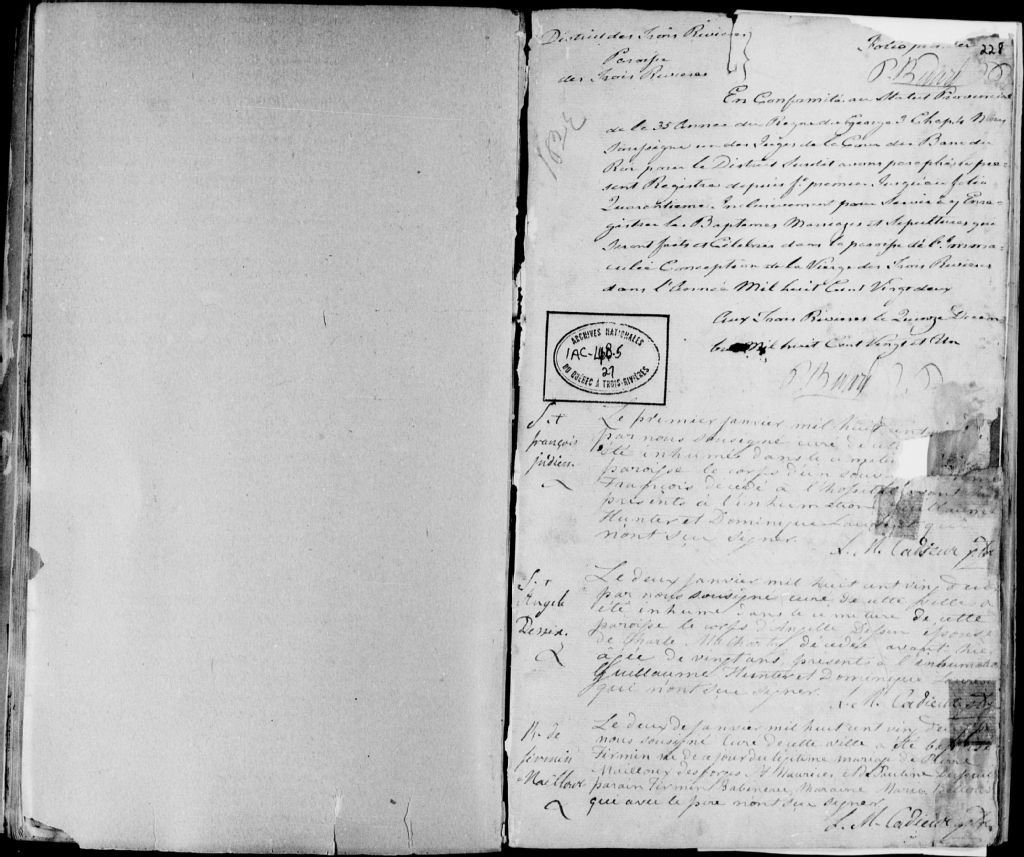 District des Trois Rivieres
Paroisse
des Trois Rivieres
Folio premier 228
P. Bu
1822
En Conformité au Statut Provincial
de la 35 Année du Regne de George 3 Chapte
un des Juges de la Cour du Banc du
Roi pour le District Susdit avons paraphé le pre-
sent Registre depuis fo. premier Jusqu'au folio
Inclusivement pour Servir à y Enre-
gistrer les Baptemes Mariages et Sepultures qui
Seront faits et Célébrés dans la paroisse de l'Imma-
culée Conception de la Vierge des Trois Rivieres
dans l'Année Mil huit Cent Vingt deux
Aux Trois Rivieres le Quinze Decem
bre Mil huit Cent Vingt et Un
P. Bu
ARCHIVES NATIONALES
IAC-48-5
27
DU QUÉBEC À TROIS-RIVIÈRES
S. +
françois
Le premier janvier mil huit cent
par nous sousigné curé de cette
été inhumé dans le cimetiere
paroisse le corps d'un
François décédé à l'hopital
présents à l'inhumation
Hunter et Dominique qui
n'ont seu signer.
L. M. Cadieux ptre
S. +
Angele
Le deux janvier mil huit cent vingt deux
par nous sousigné curé de cette ville a
été inhumé dans le cimetiere de cette
paroisse le corps d'Angelle épouse
de Charle décédée avant hier
agée de vingt ans, présent à l'inhumation
Guillaume Hunter et Dominique
qui n'ont seu signer.
L. M. Cadieux ptre
B. de
firmin
Mailloux
Le deux de janvier mil huit cent vingt deux par
nous sousigné curé de cette ville a été baptisé
Firmin né de ce jour du légitime mariage de Pierre
Mailloux des forges St Maurices et de Pauline
parain Firmin Babineau, Maraine Maria
qui avec le pere n'ont seu signer.
L. M. Cadieux ptre